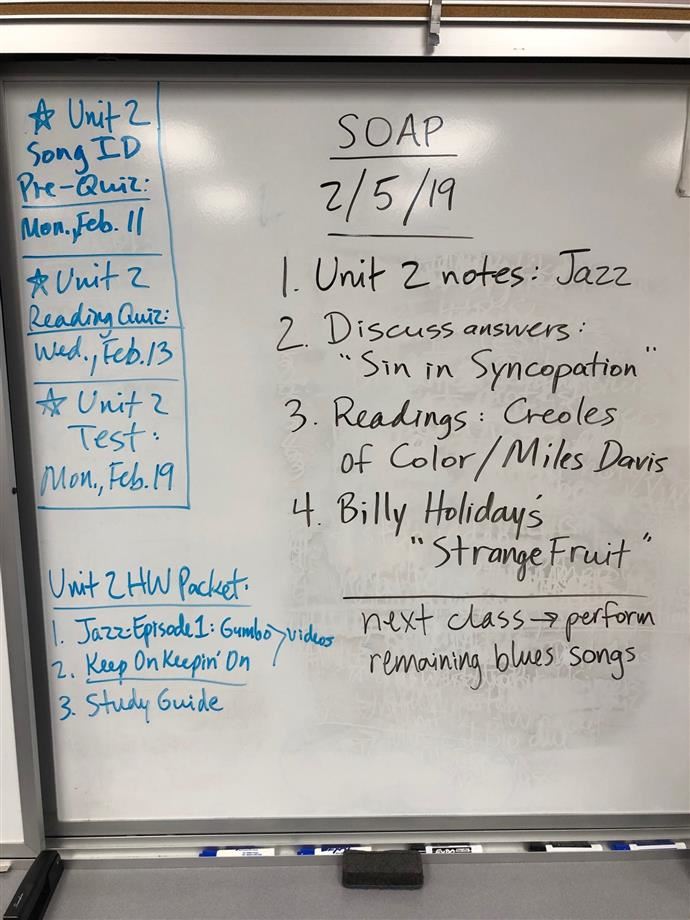 ☆ Unit 2
Song ID
Pre-Quiz:
Mon., Feb. 11
☆ Unit 2
Reading Quiz:
Wed., Feb. 13
☆ Unit 2
Test:
Mon., Feb. 19
Unit 2 HW Packet:
1. Jazz: Episode 1: Gumbo > videos
2. Keep On Keepin' On
3. Study Guide
SOAP
2/5/19
1. Unit 2 notes: Jazz
2. Discuss answers:
"Sin in Syncopation"
3. Readings: Creoles
of Color/Miles Davis
4. Billy Holiday's
"Strange Fruit"
next class → perform
remaining blues songs
EXPO